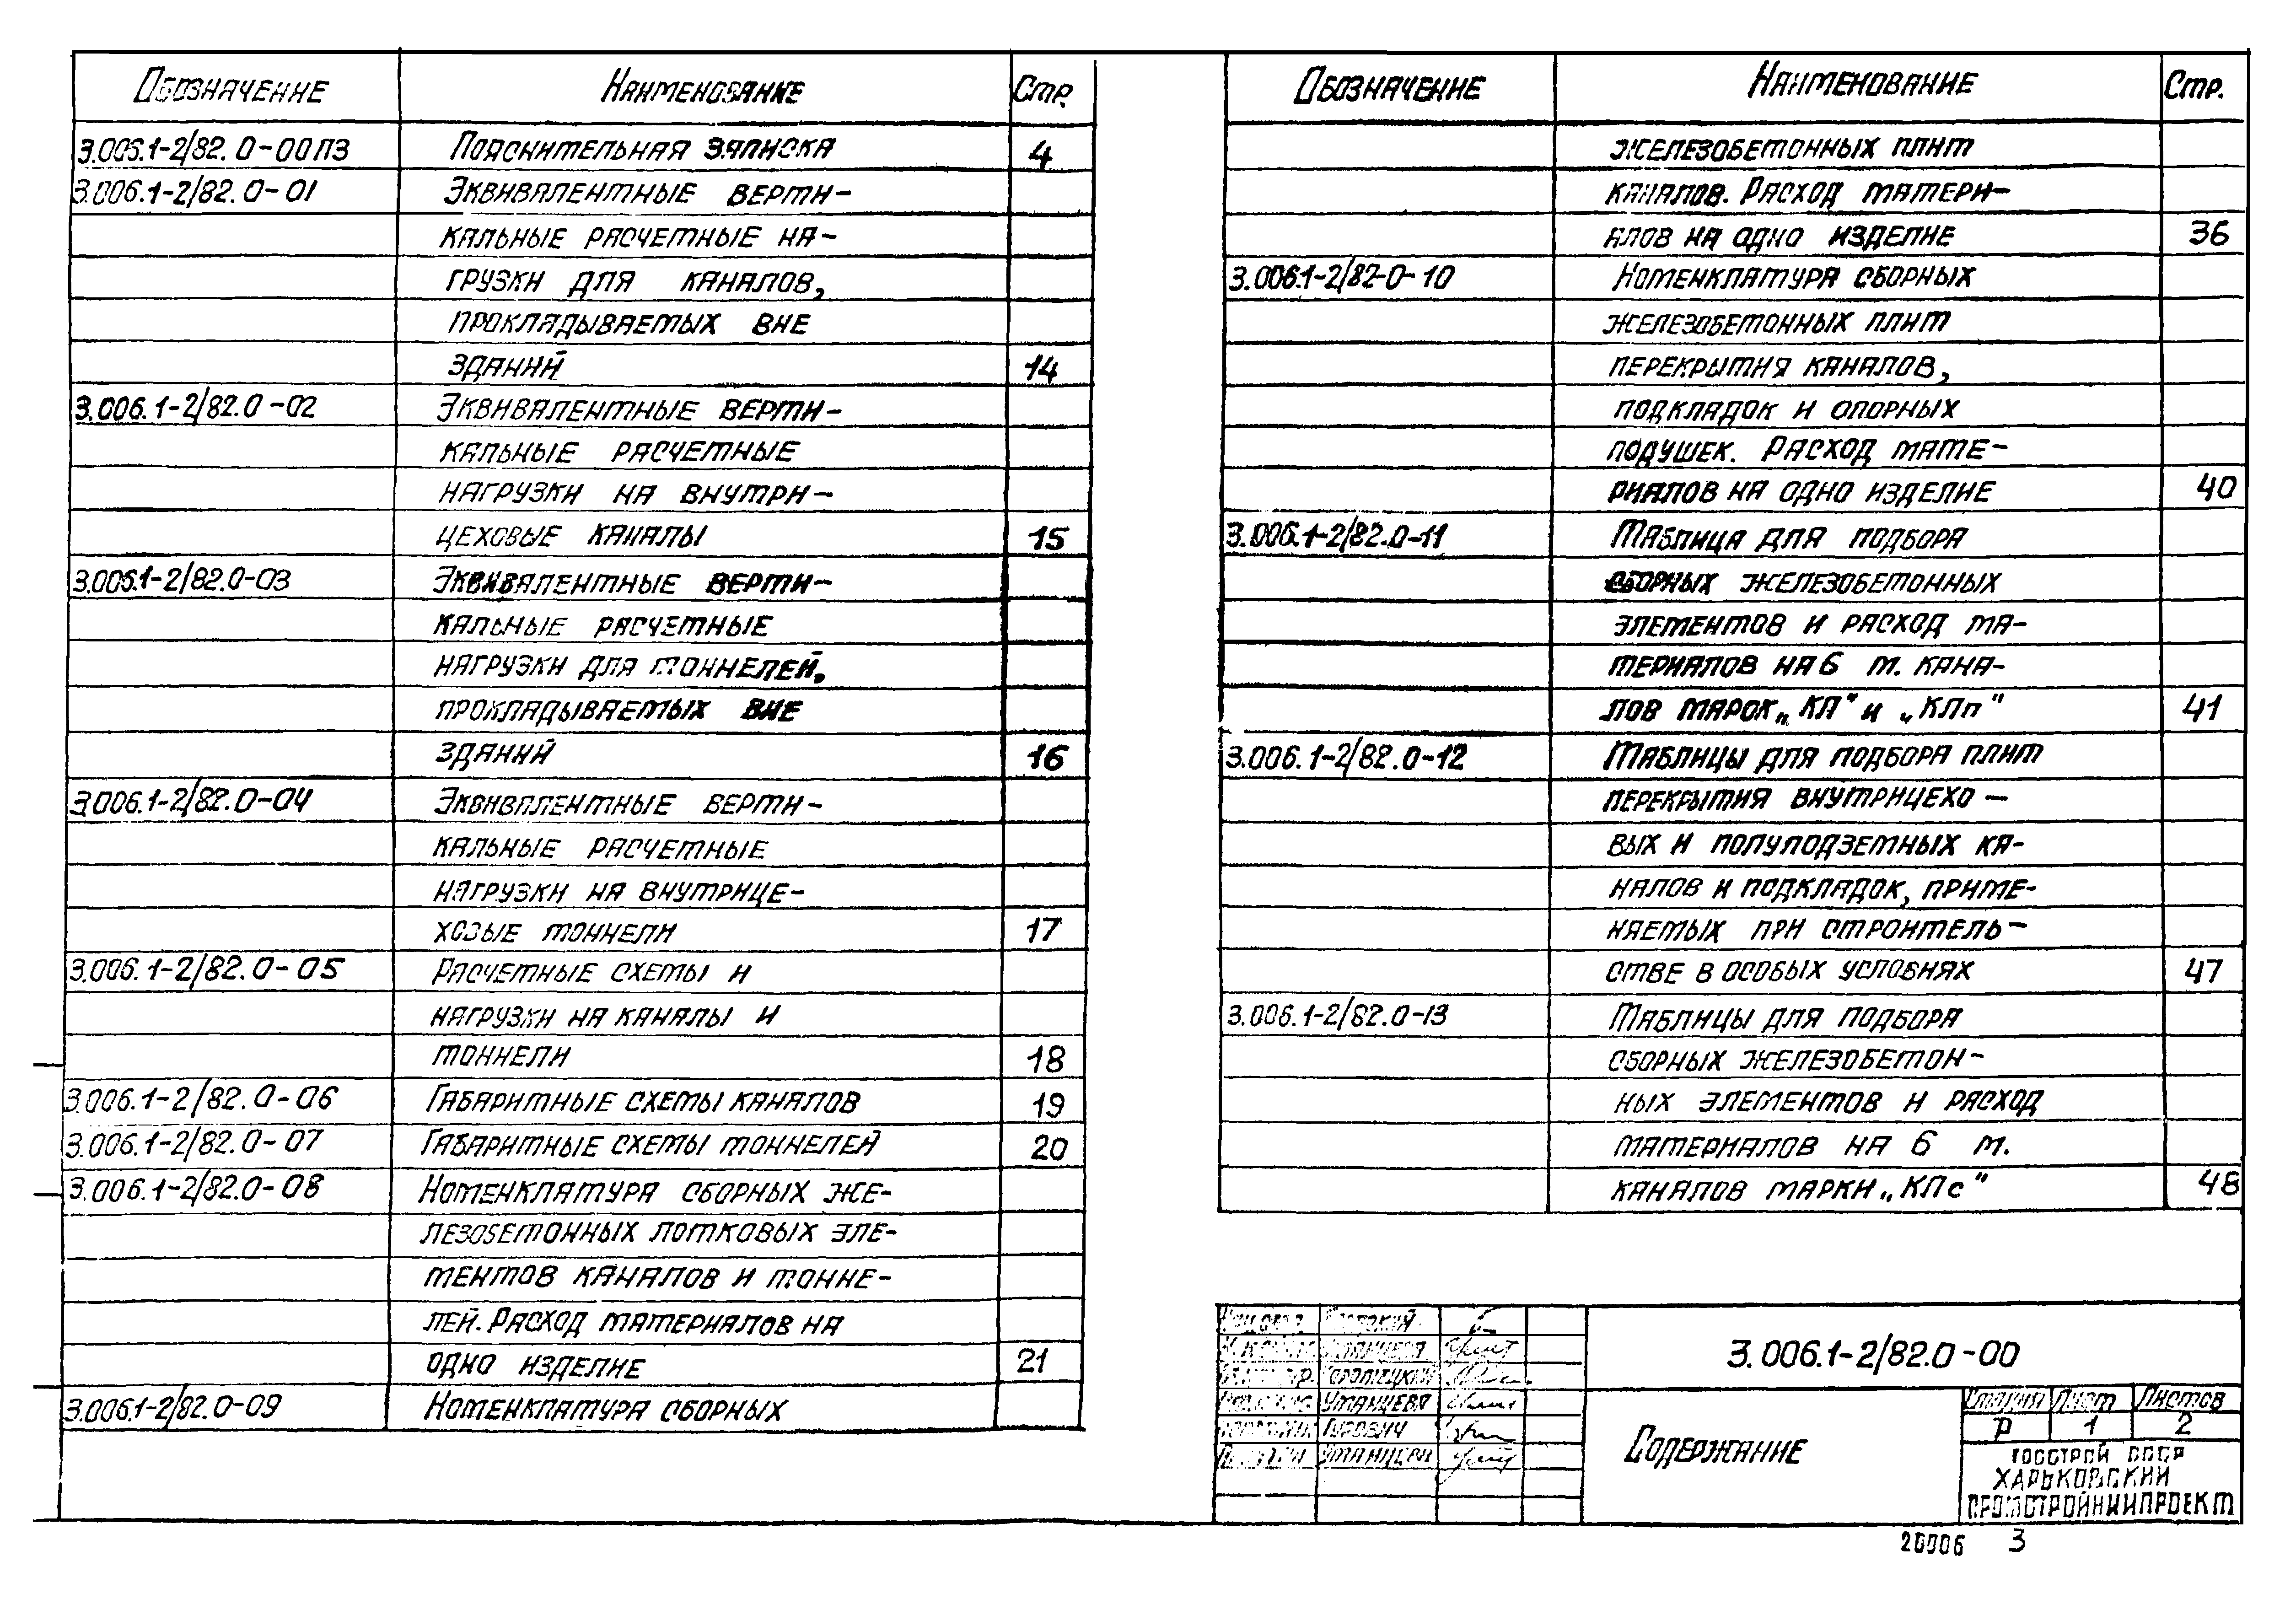 Обозначение Наименование Стр.
3.006.1-2/82.0-00ПЗ Пояснительная записка 4
3.006.1-2/82.0-01 Эквивалентные верти-
кальные расчетные на-
грузки для каналов,
прокладываемых вне
зданий 14
3.006.1-2/82.0-02 Эквивалентные верти-
кальные расчетные
нагрузки на внутри-
цеховые каналы 15
3.006.1-2/82.0-03 Эквивалентные верти-
кальные расчетные
нагрузки для тоннелей,
прокладываемых вне
зданий 16
3.006.1-2/82.0-04 Эквивалентные верти-
кальные расчетные
нагрузки на внутрице-
ховые тоннели 17
3.006.1-2/82.0-05 Расчетные схемы и
нагрузки на каналы и
тоннели 18
3.006.1-2/82.0-06 Габаритные схемы каналов 19
3.006.1-2/82.0-07 Габаритные схемы тоннелей 20
3.006.1-2/82.0-08 Номенклатура сборных же-
лезобетонных лотковых эле-
ментов каналов и тонне-
лей. Расход материалов на
одно изделие 21
3.006.1-2/82.0-09 Номенклатура сборных
Обозначение Наименование Стр.
железобетонных плит
каналов. Расход матери-
алов на одно изделие 36
3.006.1-2/82-0-10 Номенклатура сборных
железобетонных плит
перекрытия каналов,
подкладок и опорных
подушек. Расход мате-
риалов на одно изделие 40
3.006.1-2/82.0-11 Таблица для подбора
сборных железобетонных
элементов и расход ма-
териалов на 6 м. кана-
лов марок „КЛ" и „КЛп" 41
3.006.1-2/82.0-12 Таблицы для подбора плит
перекрытия внутрицехо-
вых и полуподземных ка-
налов и подкладок, приме-
няемых при строитель-
стве в особых условиях 47
3.006.1-2/82.0-13 Таблицы для подбора
сборных железобетон-
ных элементов и расход
материалов на 6 м.
каналов марки „КЛс" 48
Уманцева
Гурович
3.006.1-2/82.0-00
Содержание
Стадия Лист Листов
Р 1 2
Госстрой СССР
Харьковский
ПромстройНИИпроект
20006 3